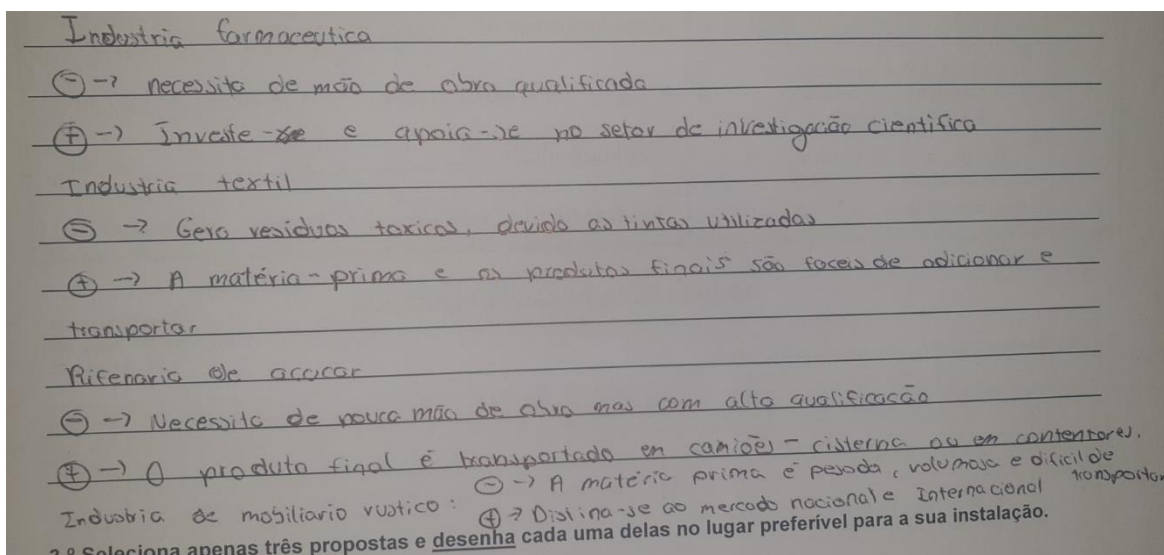 Industria farmaceutica
⊖ -> necessita de mão de obra qualificada
⊕ -> Investe-se e apoia-se no setor de investigação cientifica
Industria textil
⊖ -> Gera residuos toxicos, devido as tintas utilizadas
⊕ -> A matéria-prima e os produtos finais são faceis de adicionar e
transportar
Rifenaria de acucar
⊖ -> Necessita de pouca mão de obra mas com alta qualificação
⊕ -> O produto final é transportado en camiões-cisterna ou em contentores.
Industria de mobiliario rustico: ⊖ -> A matéria prima é pesada, volumosa e dificil de transportar
⊕ -> Distina-se ao mercado nacional e Internacional
2.º Seleciona apenas três propostas e desenha cada uma delas no lugar preferível para a sua instalação.